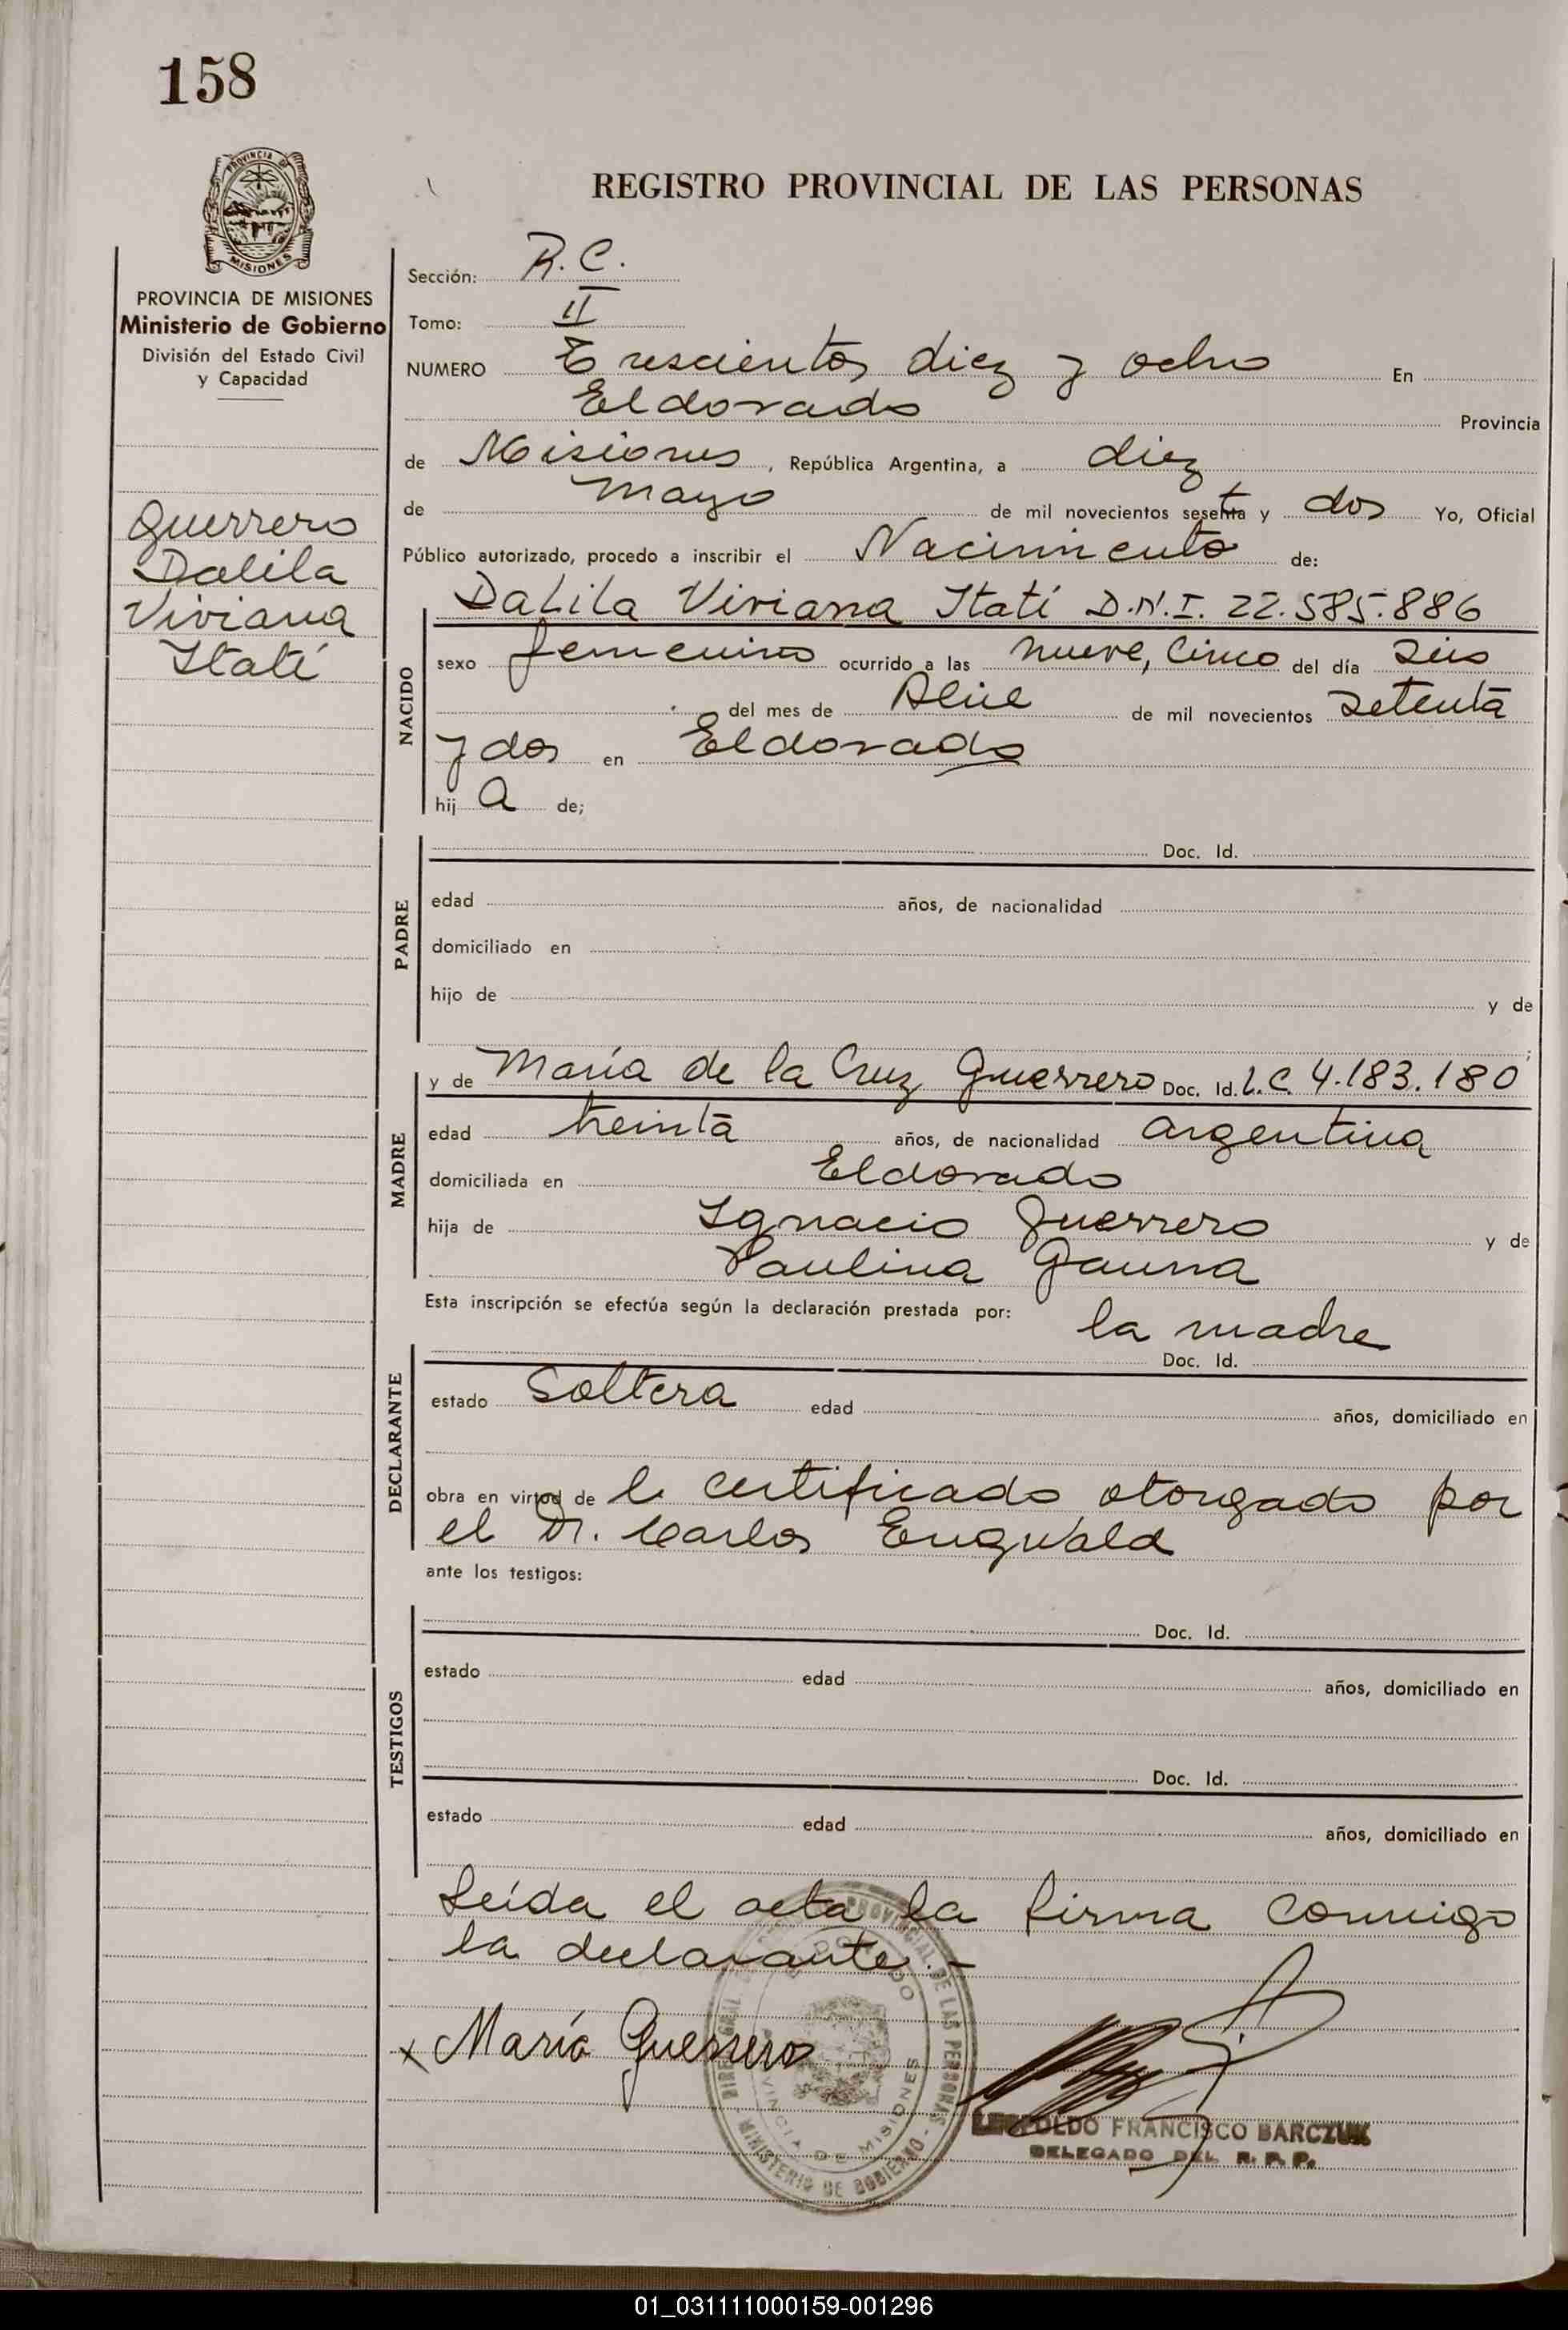 158
PROVINCIA DE
MISIONES
PROVINCIA DE MISIONES
Ministerio de Gobierno
División del Estado Civil
y Capacidad
Guerrero
Dalila
Viviana
Itatí
REGISTRO PROVINCIAL DE LAS PERSONAS
Sección: R.C.
Tomo: II
NUMERO Trescientos diez y ocho En
Eldorado Provincia
de Misiones, República Argentina, a diez
de mayo de mil novecientos setenta y dos Yo, Oficial
Público autorizado, procedo a inscribir el Nacimiento de:
NACIDO
Dalila Viviana Itatí D.N.I. 22.585.886
sexo femenino ocurrido a las nueve, cinco del día seis
del mes de Abril de mil novecientos setenta
y dos en Eldorado
hij a de;
PADRE
Doc. Id.
edad años, de nacionalidad
domiciliado en
hijo de y de
;
MADRE
y de María de la Cruz Guerrero Doc. Id. L.C. 4.183.180
edad treinta años, de nacionalidad argentina
domiciliada en Eldorado
hija de Ignacio Guerrero y de
Paulina Gauna
Esta inscripción se efectúa según la declaración prestada por: la madre
DECLARANTE
Doc. Id.
estado Soltera edad años, domiciliado en
obra en virtud de l certificado otorgado por
el Dr. Carlos Engwald
ante los testigos:
TESTIGOS
Doc. Id.
estado edad años, domiciliado en
Doc. Id.
estado edad años, domiciliado en
Leída el acta la firma conmigo
la declarante.-
x María Guerrero
PROVINCIAL DE LAS PERSONAS
ELDORADO
PROVINCIA DE MISIONES
MINISTERIO DE GOBIERNO
LEOPOLDO FRANCISCO BARCZUK
DELEGADO DEL R. P. P.
01_031111000159-001296